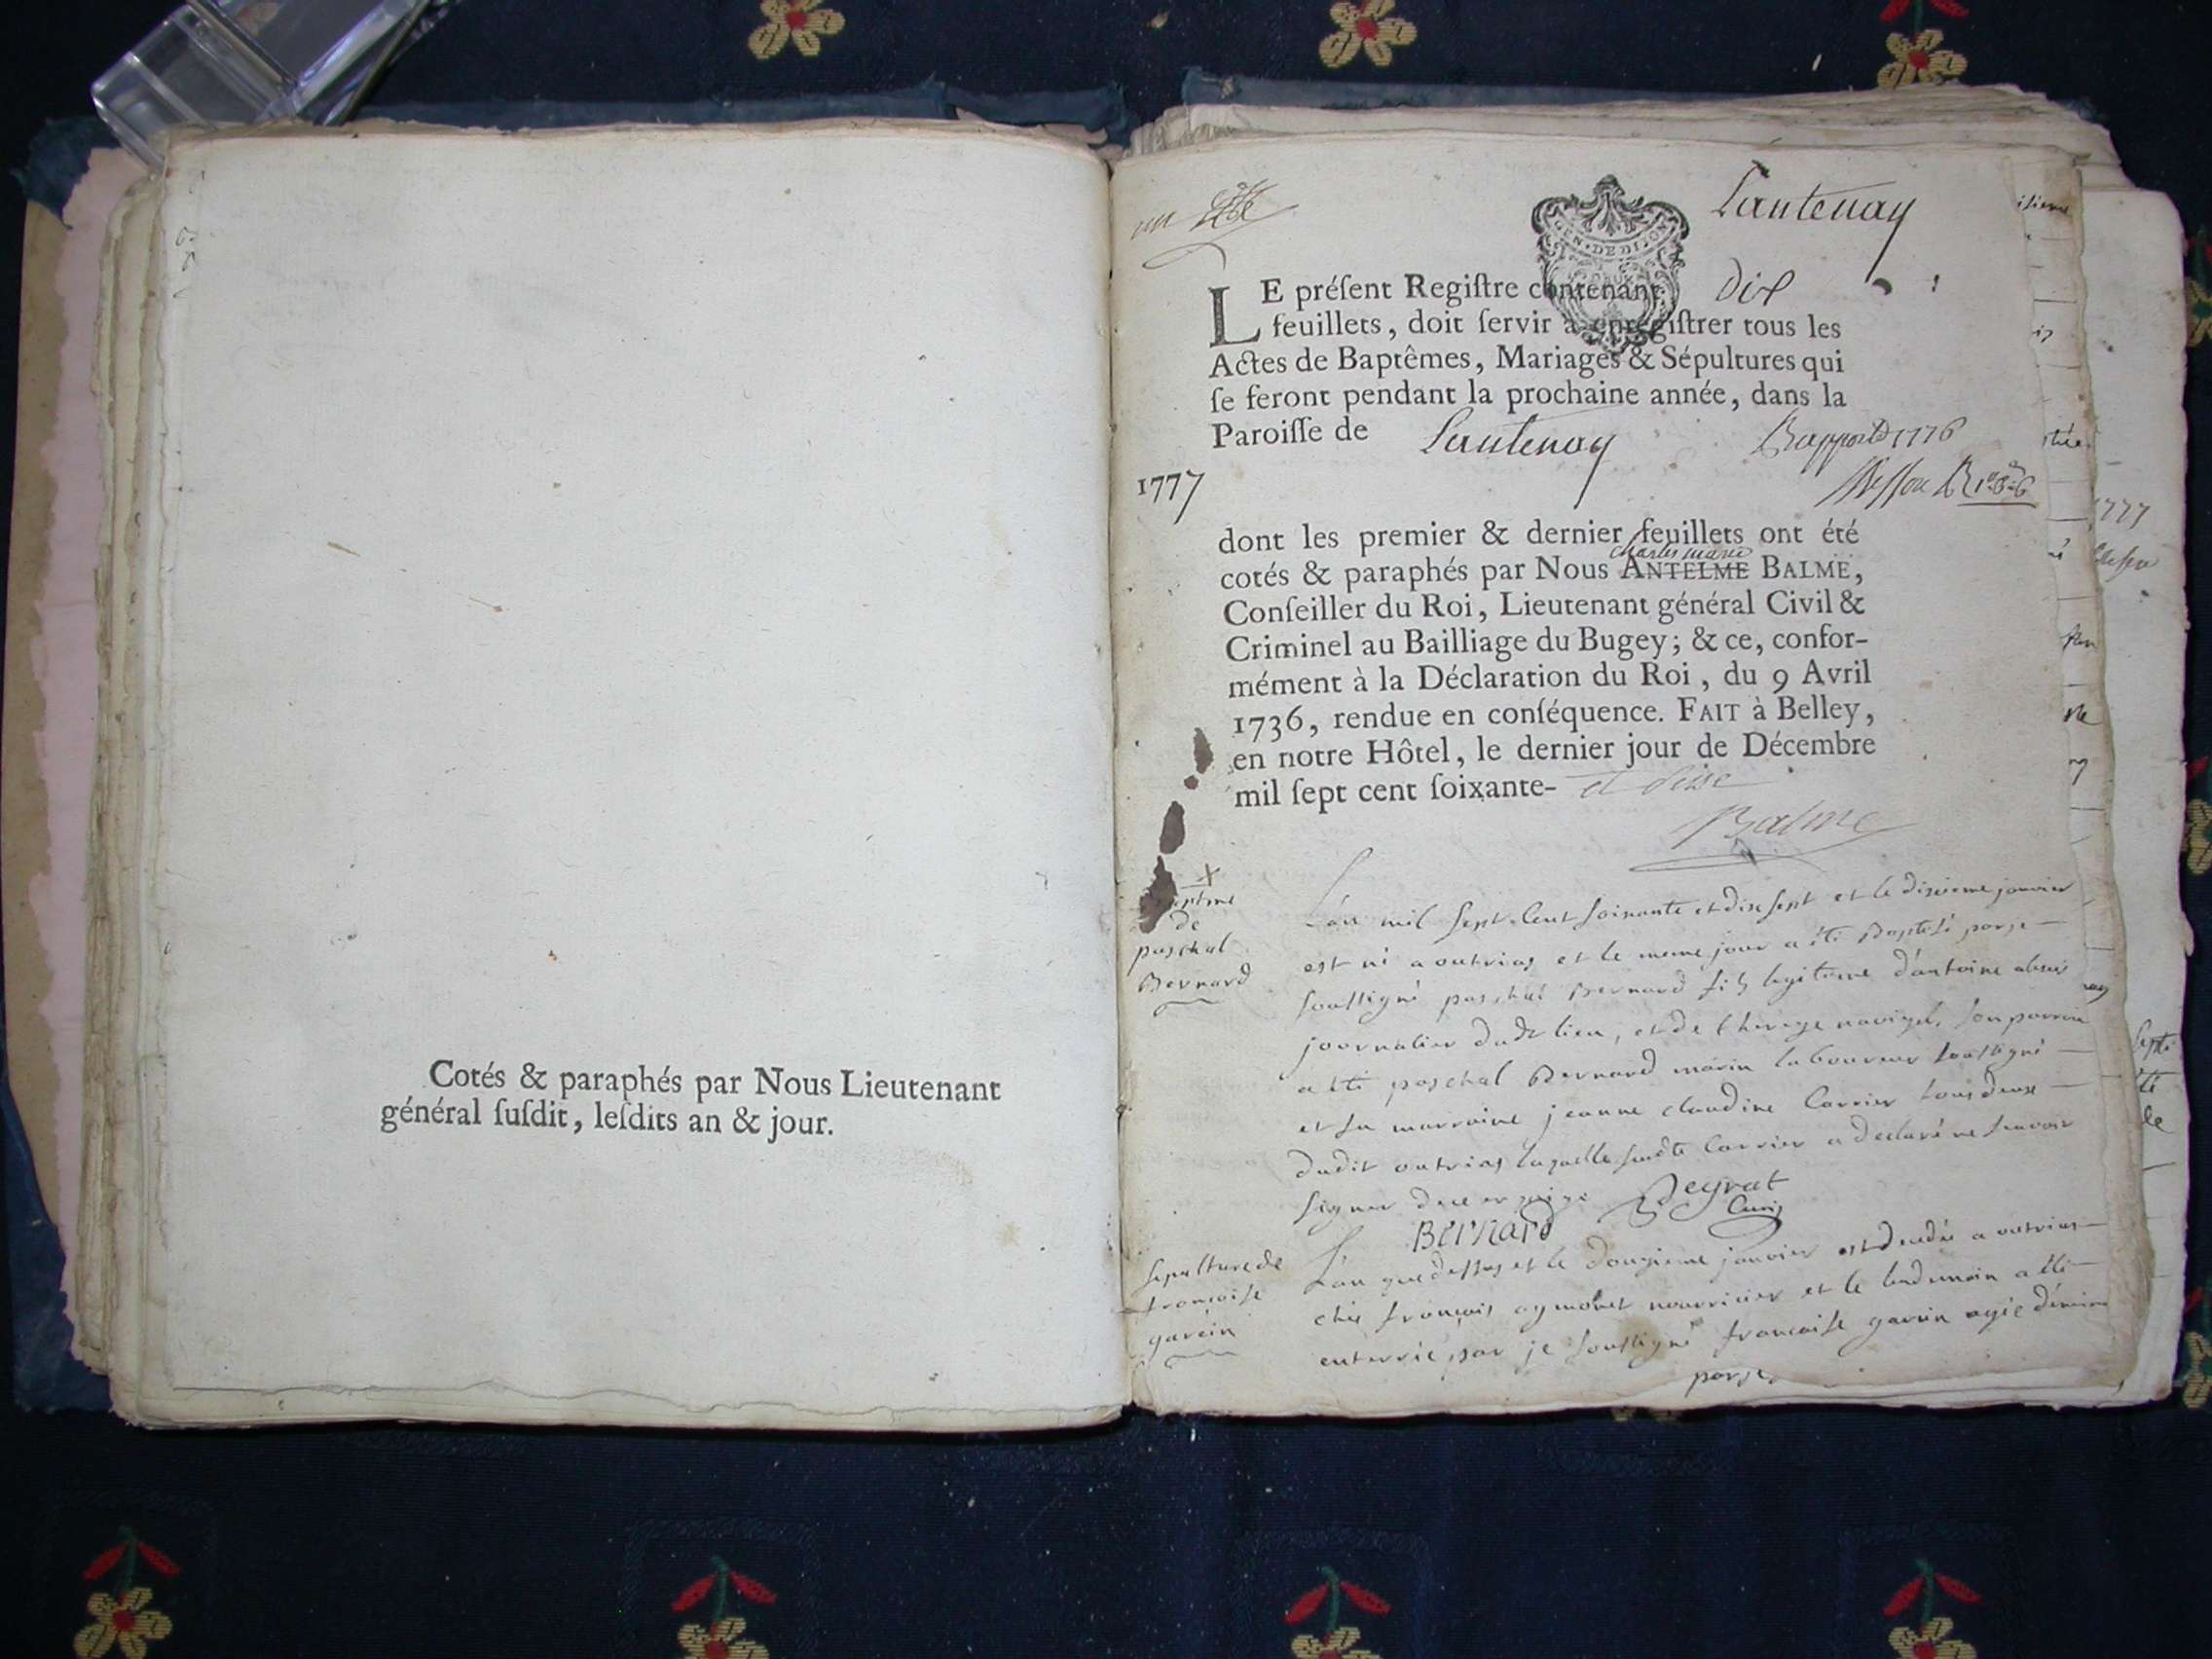 Cotés & paraphés par Nous Lieutenant
général ſuſdit, leſdits an & jour.
un
Lantenay
GEN. DE DIJON
LE préſent Regiſtre contenant dix
feuillets, doit ſervir à enregiſtrer tous les
Actes de Baptêmes, Mariages & Sépultures qui
ſe feront pendant la prochaine année, dans la
Paroiſſe de Lantenay
1777
dont les premier & dernier feuillets ont été
cotés & paraphés par Nous charles marie ANTELME BALME,
Conſeiller du Roi, Lieutenant général Civil &
Criminel au Bailliage du Bugey; & ce, confor-
mément à la Déclaration du Roi, du 9 Avril
1736, rendue en conſéquence. FAIT à Belley,
en notre Hôtel, le dernier jour de Décembre
mil ſept cent ſoixante- et seise
Balme
de
paschal
Bernard
L'an mil sept cent soixante et dix sept et le dixieme janvier
est né a outrias et le meme jour a été Baptisé par je
soussigné paschal Bernard fils legitime d'antoine
journalier dudt lieu, et de son parrain
a été paschal Bernard marin laboureur soussigné
et sa marraine jeanne claudine Carrier tous deux
dudit outrias laquelle sudte Carrier a declaré ne scavoir
signer de ce
Bernard Peyrat Curé
sepulture de
francoise
garcin
L'an que dessus et le douzieme janvier est decedée a outrias
chés françois aymonet nourricier et le lendemain a été
enterrée par je soussigné francoise garcin agée
par je